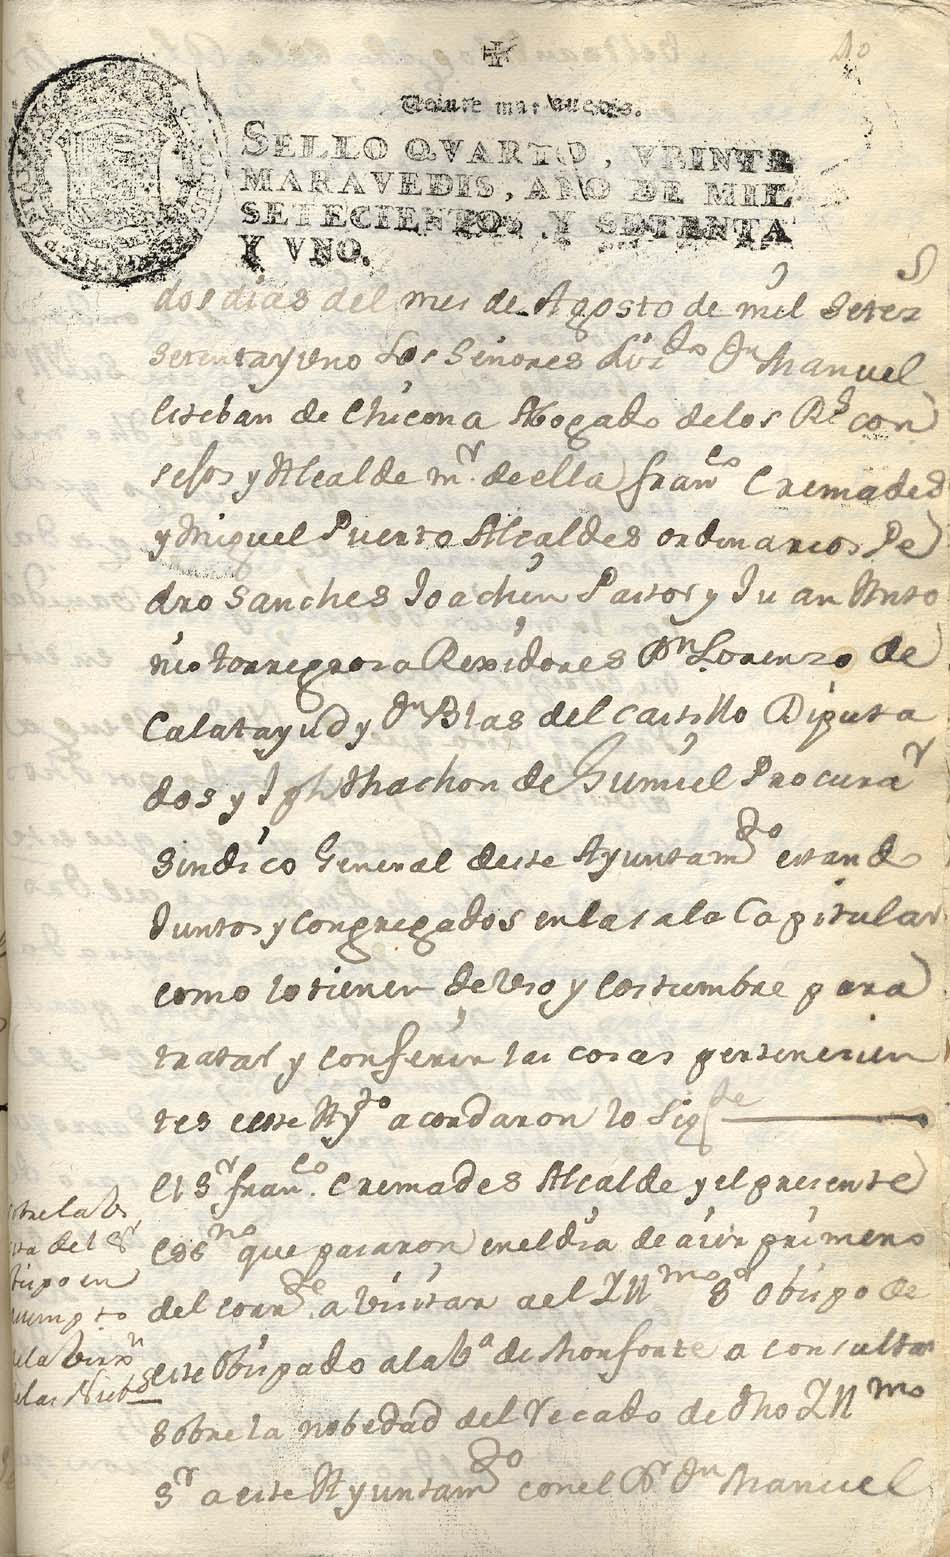 40
Veinte maravedis.
SELLO QVARTO, VEINTE
MARAVEDIS, AÑO DE MIL
SETECIENTOS Y SETENTA
Y VNO.
dos dias del mes de Agosto de mil Setez.s
setenta y uno Los Señores Liz.do Dn Manuel
Esteban de Chicona Abogado de los R.s con
sejos y Alcalde m.r de ella fran.co Cremades
y Miguel Puerto Alcaldes ordinarios Pe
dro Sanches Joachin Pastor y Juan Anto
nio torregrosa Rexidores Dn Lorenzo de
Calatayud y Dn Blas del Castillo Diputa
dos y Jph Machon de Gumiel Procura.r
Sindico General deste Ayuntam.to estando
Juntos y congregados en la sala Capitular
como lo tienen de Uso y Costumbre para
tratar y conferir las cosas pertenecien
tes a este Ay.to acordaron lo Sig.te
El S.r fran.co Cremades Alcalde y el presente
ess.no que pasaron en el dia de aier primero
del corr.te a visitar a el Ill.mo S.r Obispo de
este Obispado a la V.a de Monforte a consultar
sobre la nobedad del recado de dho Ill.mo
S.r a este Ayuntam.to con el D.r Dn Manuel
sobre la vi
ta del S.r
bispo en
sumpto
de la Virx.n
de las Nieb.s